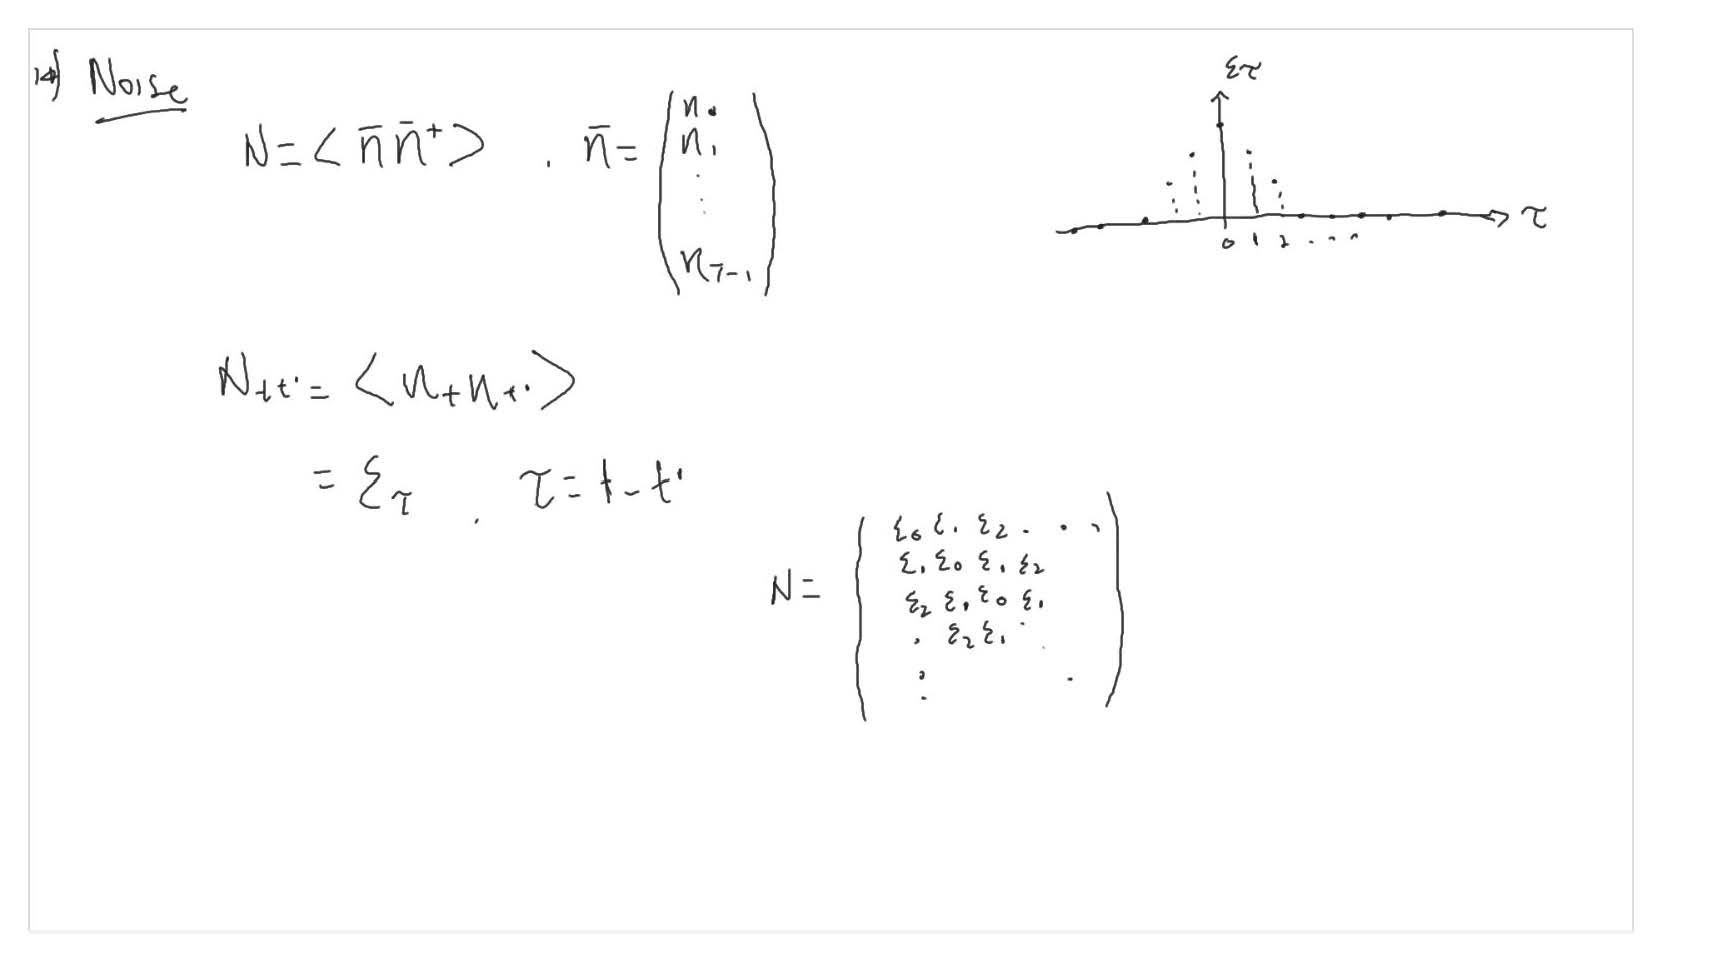 14) Noise
N = < n̄ n̄⁺ > . n̄ = ( n₀
n₁
.
.
n_T-1 )
ξτ
τ
0 1 2 . . . .
N_tt' = < n_t n_t' >
= ξ_τ , τ = t - t'
N = ( ξ₀ ξ₁ ξ₂ . . .
ξ₁ ξ₀ ξ₁ ξ₂
ξ₂ ξ₁ ξ₀ ξ₁
. ξ₂ ξ₁ . .
: . )